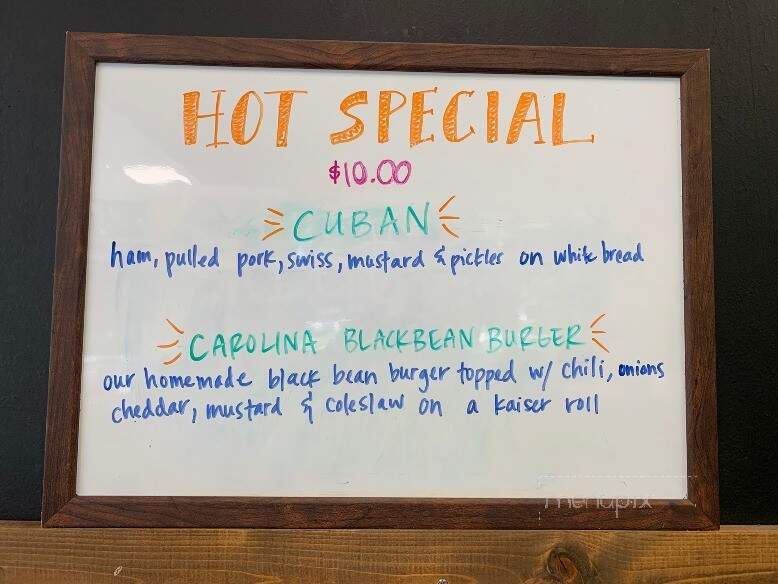 HOT SPECIAL
$10.00
CUBAN
ham, pulled pork, swiss, mustard & pickles on white bread
CAROLINA BLACKBEAN BURGER
our homemade black bean burger topped w/ chili, onions
cheddar, mustard & coleslaw on a kaiser roll
menupix